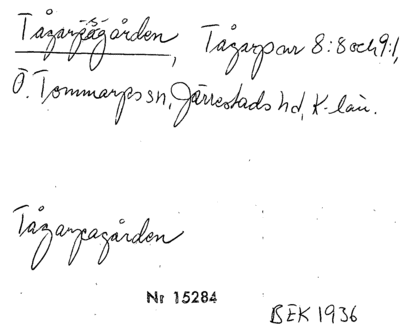 Tågarpsgården, Tågarp nr 8:8 och 9:1,
Ö. Tommarps sn, Järrestads hd, K-län.
Tågarpagården
Nr 15284
BEK 1936